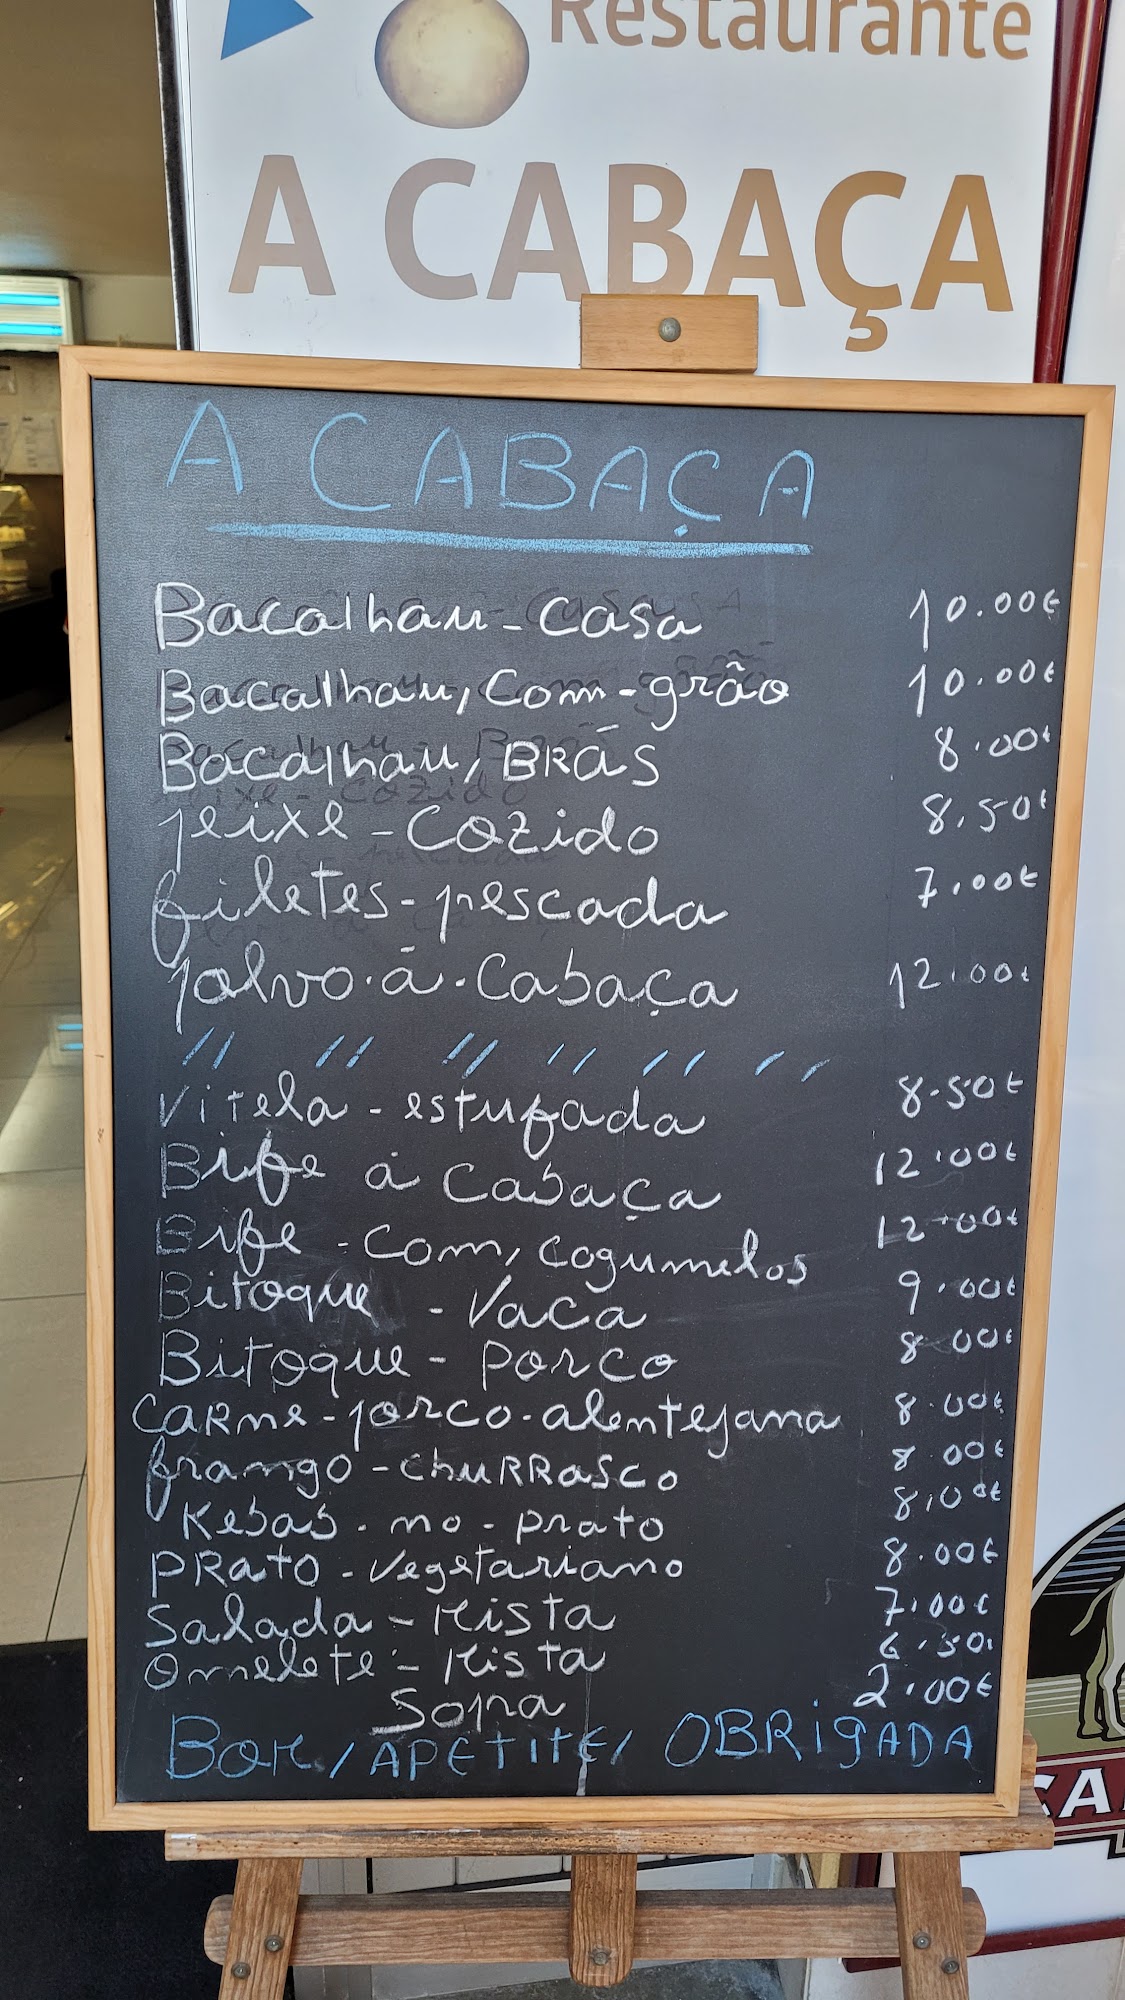 Restaurante
A CABAÇA
A CABAÇA
Bacalhau - Casa 10.00€
Bacalhau, Com - grão 10.00€
Bacalhau, BRÁS 8.00€
peixe - Cozido 8.50€
filetes - pescada 7.00€
polvo. à. Cabaça 12.00€
// // // // // //
Vitela - estufada 8.50€
Bife à Cabaça 12.00€
Bife - com, cogumelos 12.00€
Bitoque - Vaca 9.00€
Bitoque - porco 8.00€
CARNE - porco. alentejana 8.00€
frango - chuRRasco 8.00€
Kebab. no - prato 8,00€
PRATO - Vegetariano 8.00€
Salada - Mista 7.00€
Omelete - Mista 6.50
Sopa 2.00€
BOM / APETITE / OBRIGADA